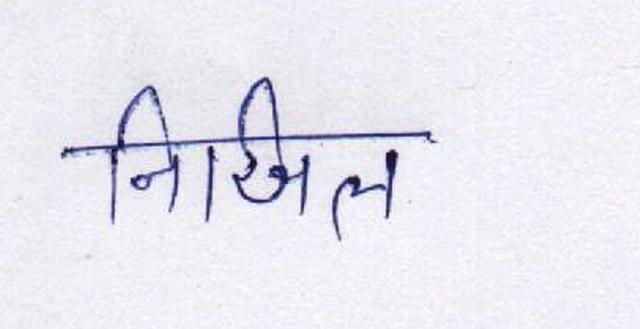 निखिल